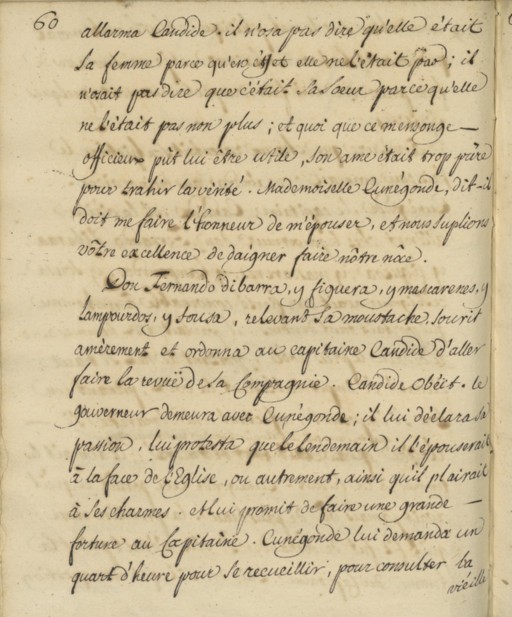 60
allarma Candide. il n'osa pas dire qu'elle était
sa femme parce qu'en éffet elle ne l'était pas; il
n'osait pas dire que c'était sa Sœur parce qu'elle
ne l'était pas non plus; et quoi que ce mensonge —
officieux pût lui être utile, son ame était trop pure
pour trahir la vérité. Mademoiselle Cunégonde, dit-il
doit me faire l'honneur de m'épouser, et nous suplions
vôtre excellence de daigner faire nôtre nôce.
Don Fernando dibarra, y figuera, y mascarenes, y
Lampourdos, y Sousa, relevant sa moustache, sourit
amèrement et ordonna au capitaine Candide d'aller
faire la revuë de sa Compagnie. Candide obéit. le
gouverneur demeura avec Cunégonde; il lui déclara sa
passion, lui protesta que le lendemain il l'épouserait
à la face de l'Eglise, ou autrement, ainsi qu'il plairait
à ses charmes. et lui promit de faire une grande —
fortune au Capitaine. Cunégonde lui demanda un
quart d'heure pour se recueillir, pour consulter la
vieille